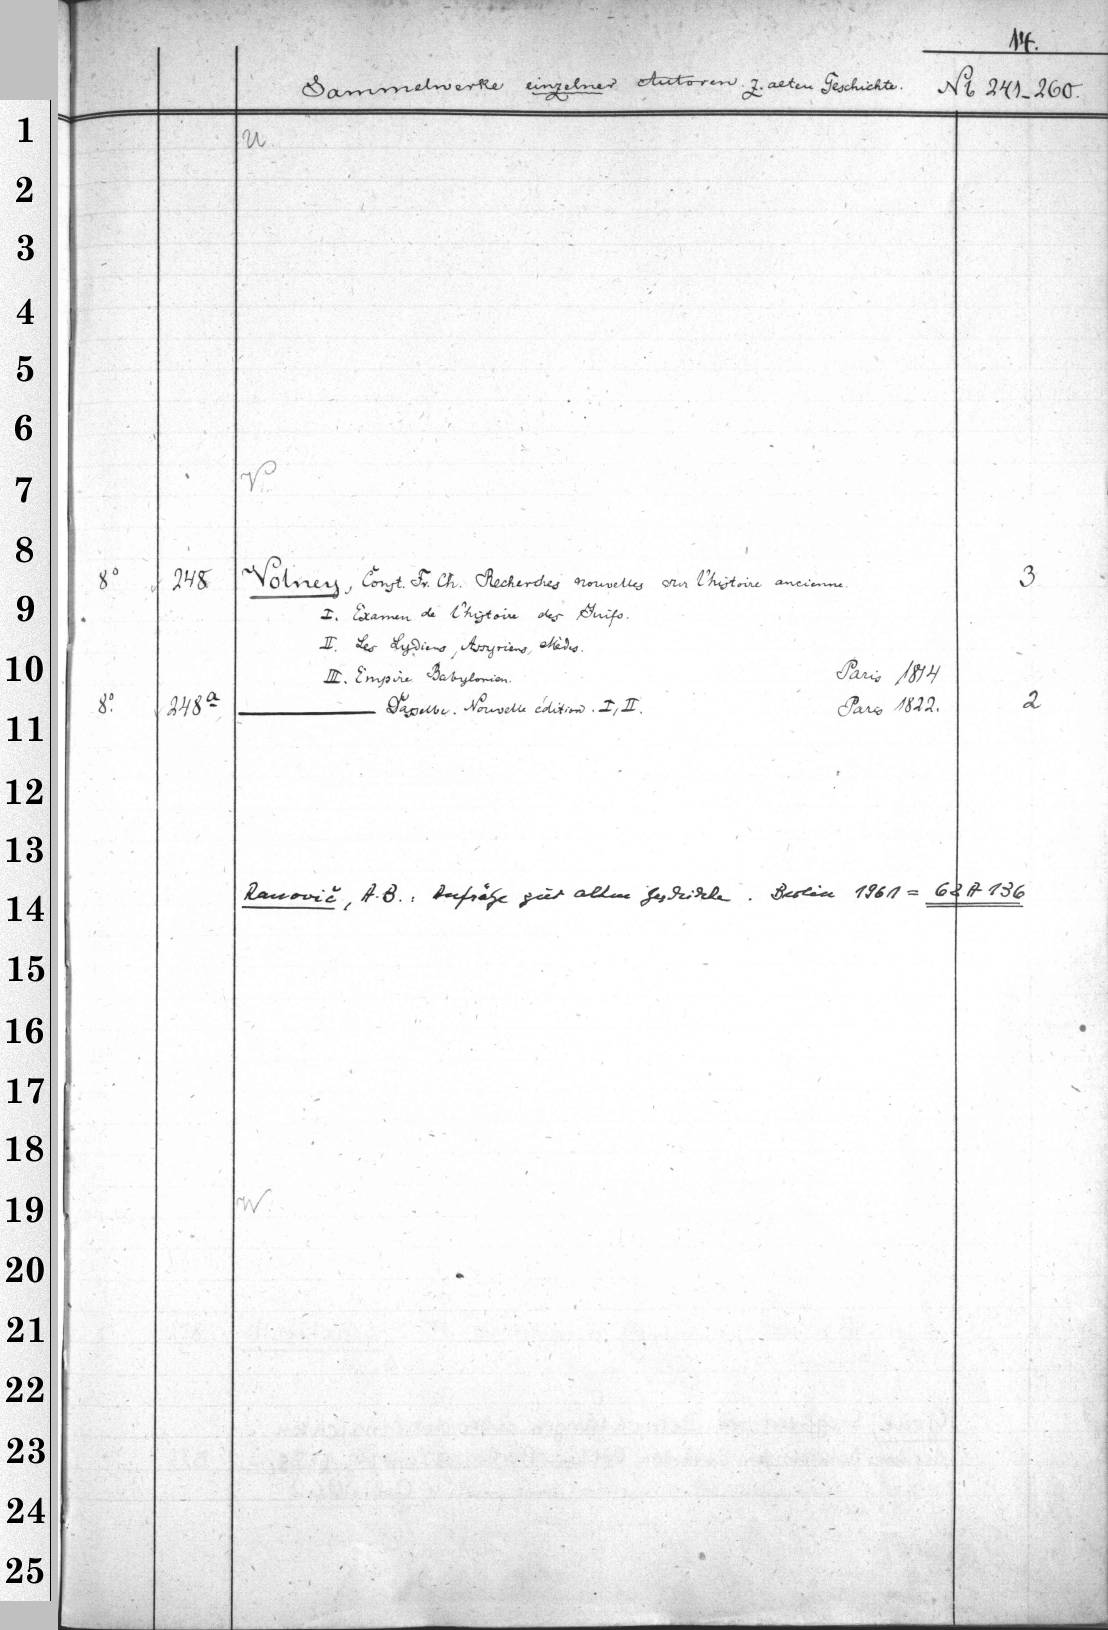 14.
Sammelwerke einzelner Autoren z. alten Geschichte. No 241-260.
U.
V.
8° 248 Volney, Const. Fr. Ch. Recherches nouvelles sur l'histoire ancienne. 3
I. Examen de l'histoire des Juifs.
II. Les Lydiens, Assyriens, Mèdes.
III. Empire Babylonien. Paris 1814
8° 248a Dasselbe. Nouvelle édition. I, II. Paris 1822. 2
Ranovič, A.B.: Aufsätze zur alten Geschichte. Berlin 1961 = 62 A 136
W.
1
2
3
4
5
6
7
8
9
10
11
12
13
14
15
16
17
18
19
20
21
22
23
24
25